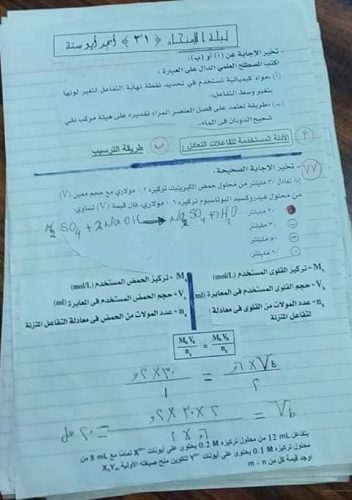 ليلة الامتحان (٣١) أحمد أبو سنة
- تخير الإجابة عن (أ) أو (ب) :
اكتب المصطلح العلمي الدال على العبارة :
(أ) مواد كيميائية تستخدم في تحديد نقطة نهاية التفاعل لتغير لونها
بتغير وسط التفاعل.
(ب) طريقة تعتمد على فصل العنصر المراد تقديره على هيئة مركب نقي
شحيح الذوبان في الماء.
أ الأدلة المستخدمة لتفاعلات التعادل : ب طريقة الترسيب
٧٧ - تخير الإجابة الصحيحة .
إذا تعادل ٣٠ مليلتر من محلول حمض الكبريتيك تركيزه ٠,٢ مولاري مع حجم معين (V)
من محلول هيدروكسيد البوتاسيوم تركيزه ٠,٦ مولاري فإن قيمة (V) تساوي
٢٠ مليلتر
٣٠ مليلتر
٥٠ مليلتر
٦٠ مليلتر
H₂SO₄ + 2NaOH → Na₂SO₄ + H₂O
Mₐ - تركيز الحمض المستخدم (mol/L)
Vₐ - حجم الحمض المستخدم في المعايرة (ml)
nₐ - عدد المولات من الحمض في معادلة التفاعل المتزنة
M_b - تركيز القلوي المستخدم (mol/L)
V_b - حجم القلوي المستخدم في المعايرة (ml)
n_b - عدد المولات من القلوي في معادلة
التفاعل المتزنة
MₐVₐ/nₐ = M_bV_b/n_b
يتفاعل 12 mL من محلول تركيزه 0.2 M يحتوي على أيونات Xᵐ⁺ تماما مع 8 mL من
محلول تركيزه 0.1 M يحتوي على أيونات Yⁿ⁻ لتكوين ملح صيغته الأولية XₙYₘ
أوجد قيمة كل من m ، n